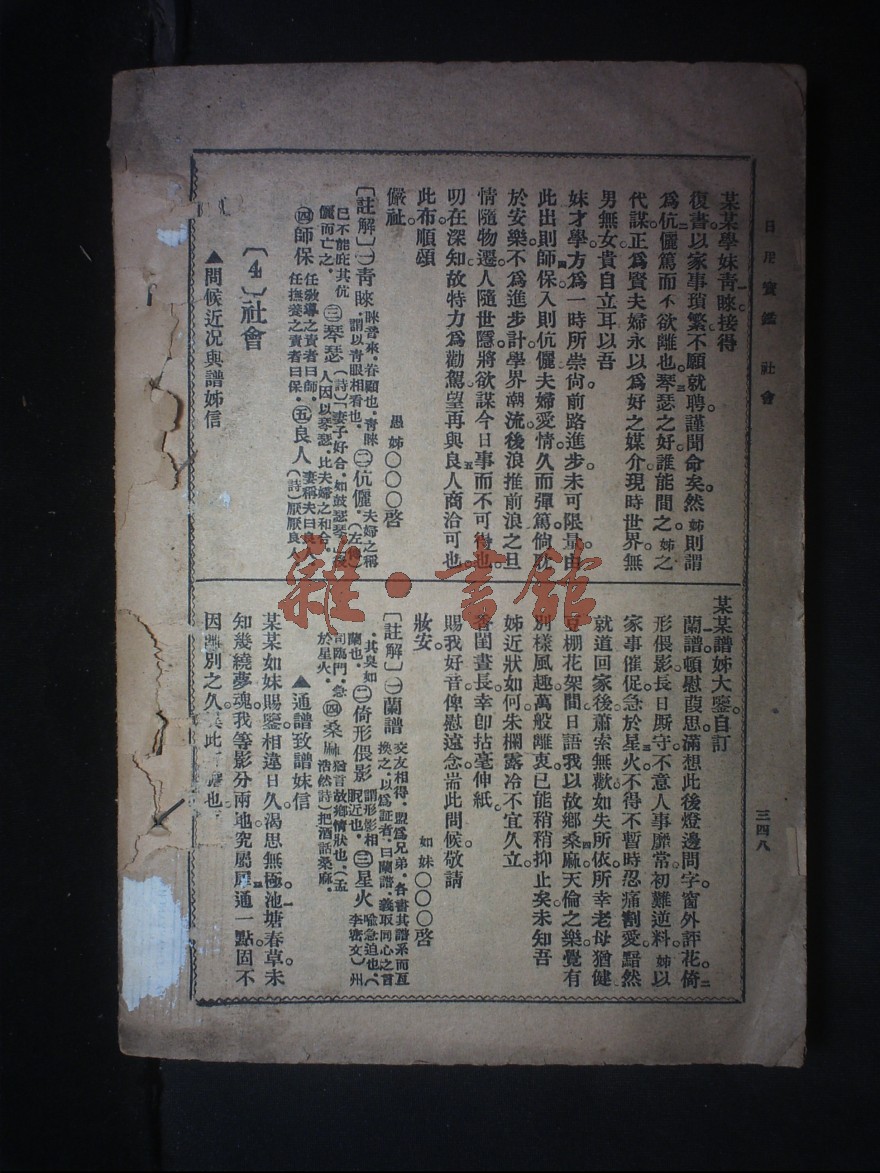 日用寶鑑 社會
三四八
某某學妹青睞接得
復書以家事瑣繁不願就聘謹聞命矣然姊則謂
爲伉儷篤而不欲離也琴瑟之好誰能間之姊之
代謀正爲賢夫婦永以爲好之媒介現時世界無
男無女貴自立耳以吾
妹才學方爲一時所崇尙前路進步未可限量由
此出則師保入則伉儷夫婦愛情久而彌篤倘耽
於安樂不爲進步計學界潮流後浪推前浪之旦
情隨物遷人隨世隱將欲謀今日事而不可得也
叨在深知故特力爲勸駕望再與良人商洽可也
此布順頌
儷祉
愚姊〇〇〇啓
〔註解〕㊀青睞 睞音來、眷顧也、青睞
謂以青眼相看也、㊁伉儷、夫婦之稱(左傳)
已不能庇其伉
儷而亡之、㊂琴瑟 (詩)「妻子好合、如鼓瑟琴」後
人因以琴瑟、比夫婦之和合、
㊃師保 任敎導之責者曰師、
任撫養之責者曰保、㊄良人 妻稱夫曰良人
(詩)厭厭良人
〔4〕社會
▲問候近况與譜姊信
某某譜姊大鑒自訂
蘭譜頓慰葭思滿想此後燈邊問字窗外評花倚
形偎影長日厮守不意人事靡常初難逆料姊以
家事催促急於星火不得不暫時忍痛割愛黯然
就道回家後蕭索無歡如失所依所幸老母猶健
豆棚花架間日語我以故鄉桑麻天倫之樂覺有
別樣風趣萬般離衷已能稍稍抑止矣未知吾
姊近狀如何朱欄露冷不宜久立
香閨晝長幸卽拈毫伸紙
賜我好音俾慰遠念耑此問候敬請
妝安
如妹〇〇〇啓
〔註解〕㊀蘭譜 交友相得、盟爲兄弟、各書其譜系而互
換之、以爲証者、曰蘭譜、義取同心之言
、其臭如
蘭也、㊁倚形偎影 謂形影相
昵近也、㊂星火 喩急迫也、(
李密文)州
司臨門、急
於星火、㊃桑麻 猶言故鄉情狀也、(孟
浩然詩)把酒話桑麻、
▲通譜致譜妹信
某某如妹賜鑒相違日久渴思無極池塘春草未
知幾繞夢魂我等影分兩地究屬犀通一點固不
因離別之久 此 也